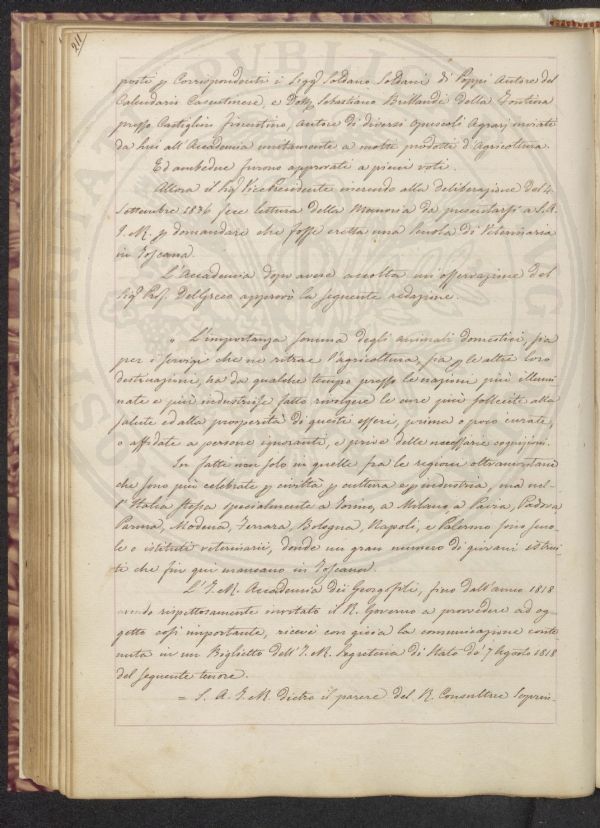 211
posti p Corrispondenti i Sigg Soldano Soldani di Poppi Autore del
Calendario Casentinese, e Dott Sebastiano Brillandi della Fontina
presso Castiglion fiorentino, autore di diversi opuscoli Agrarj inviati
da lui all'Accademia unitamente a molti prodotti d'Agricoltura.
Ed ambedue furono approvati a pieni voti.
Allora il Sig Vice Presidente inerendo alla deliberazione del 4
Settembre 1836 fece lettura della Memoria da presentarsi a S.A.
I. e R. p domandare che fosse eretta una Scuola di Veterinaria
in Toscana.
L'Accademia dopo avere accolta un osservazione del
Sig Prof. Del Greco approvò la seguente redazione.
" L'importanza somma degli animali domestici, sia
per i servigi che ne ritrae l'agricoltura, sia p le altre loro
destinazioni, ha da qualche tempo presso le nazioni più illumi
nate e più industriose fatto rivolgere le cure più sollecite alla
salute ed alla prosperità di questi esseri, prima o poco curati,
o affidati a persone ignoranti, e prive delle necessarie cognizioni.
In fatti non solo in quelle fra le regioni oltramontane
che sono più celebrate p civiltà p cultura e p industria, ma nel-
l'Italia stessa specialmente a Torino, a Milano, a Pavia, Padova
Parma, Modena, Ferrara, Bologna, Napoli, e Palermo sono scuo
le o istituti veterinarii, donde un gran numero di giovani istrui-
ti che fin qui mancano in Toscana.
L'I. e R. Accademia dei Georgofili, fino dall'anno 1818
avendo rispettosamente invitato il R. Governo a provvedere ad og
getto così importante, ricevè con gioia la comunicazione conte
nuta in un Biglietto dell'I. e R. Segreteria di Stato de' 7 Agosto 1818
del seguente tenore.
= S. A. I. e R. dietro il parere del R. Consultore Soprin-